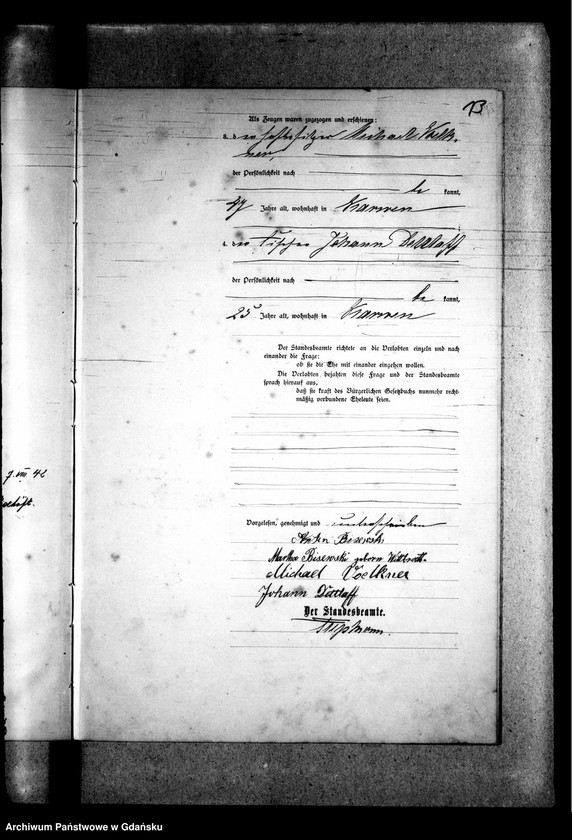 13
Als Zeugen waren zugezogen und erschienen:
3. der Hofbesitzer Michael Voelk-
ner,
der Persönlichkeit nach
be kannt,
47 Jahre alt, wohnhaft in Karwen
4. der Fischer Johann Dettlaff
der Persönlichkeit nach
be kannt,
25 Jahre alt, wohnhaft in Karwen
Der Standesbeamte richtete an die Verlobten einzeln und nach
einander die Frage:
ob sie die Ehe mit einander eingehen wollen.
Die Verlobten bejahten diese Frage und der Standesbeamte
sprach hierauf aus,
daß sie kraft des Bürgerlichen Gesetzbuchs nunmehr recht-
mäßig verbundene Eheleute seien.
7. VIII 42
Vorgelesen, genehmigt und unterschrieben
Anton Bisewski
Martha Bisewski geborn
Michael Voelkner
Johann Dettlaff
Der Standesbeamte.
Archiwum Państwowe w Gdańsku